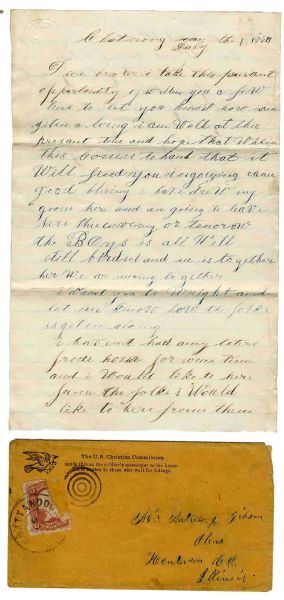 July the 1, 1864
Dire broter i take this presant
opportunity of writen you a few
lines to let you know how i am
giten a long i am Well at this
presant time and hope that When
this Comes to hand that it
Will find you enjoying
good blessing i have drew my
here and am going to leave
here this evening or tomorow
the Boys is all Well
still and we is to gether
her We ar to gether
i Want you to Wright and
let me know how the folks
is geten along
i havent had any leters
from home for some time
and i Would like to here
from the folks i Would
like to here from them
The U.S. Christian Commission
sends this as the soldier's messenger to his home.
Let it hasten to those who wait for tidings.
Mr. Andrew J. Gibson
Olena
Henderson Co.
Illinois